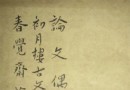 論文偶
初月樓古文
春覺齋